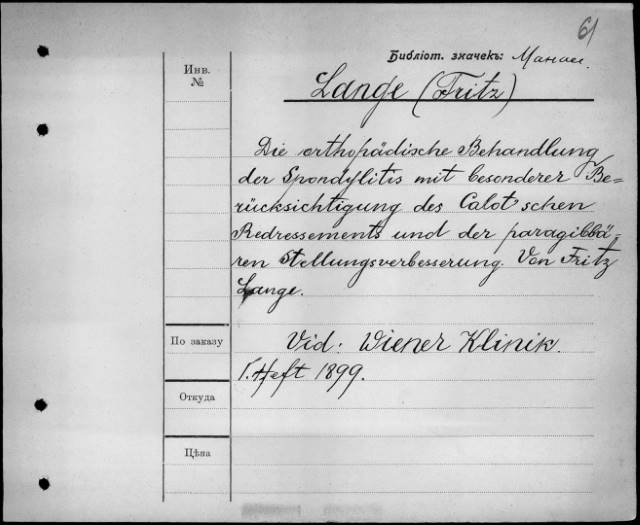 61
Библіот. значекъ: Манас.
Инв.
№
Lange (Fritz)
Die orthopädische Behandlung
der Spondylitis mit besonderer Be=
rücksichtigung des Calot'schen
Redressements und der paragibbä=
ren Stellungsverbesserung. Von Fritz
Lange.
По заказу
Vid: Wiener Klinik.
1. Heft 1899.
Откуда
Цѣна